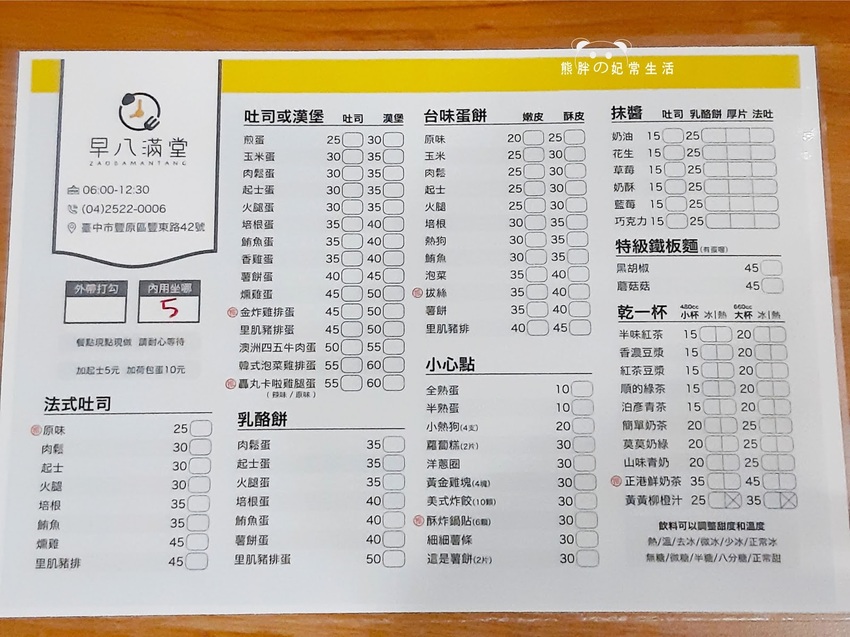 熊胖の妃常生活
早八滿堂
ZAOBAMANTANG
06:00-12:30
(04)2522-0006
臺中市豐原區豐東路42號
外帶打勾 內用坐哪
5
餐點現點現做 請耐心等待
加起士5元 加荷包蛋10元
法式吐司
原味 25
肉鬆 30
起士 30
火腿 30
培根 35
鮪魚 35
燻雞 45
里肌豬排 45
吐司或漢堡 吐司 漢堡
煎蛋 25 30
玉米蛋 30 35
肉鬆蛋 30 35
起士蛋 30 35
火腿蛋 30 35
培根蛋 35 40
鮪魚蛋 35 40
香雞蛋 35 40
薯餅蛋 40 45
燻雞蛋 45 50
金炸雞排蛋 45 50
里肌豬排蛋 45 50
澳洲四五牛肉蛋 50 55
韓式泡菜雞排蛋 55 60
轟丸卡啦雞腿蛋 55 60
(辣味/原味)
乳酪餅
肉鬆蛋 35
起士蛋 35
火腿蛋 35
培根蛋 40
鮪魚蛋 40
薯餅蛋 40
里肌豬排蛋 50
台味蛋餅 嫩皮 酥皮
原味 20 25
玉米 25 30
肉鬆 25 30
起士 25 30
火腿 25 30
培根 30 35
熱狗 30 35
鮪魚 30 35
泡菜 35 40
拔絲 35 40
薯餅 35 40
里肌豬排 40 45
小心點
全熟蛋 10
半熟蛋 10
小熱狗(4支) 20
蘿蔔糕(2片) 30
洋蔥圈 30
黃金雞塊(4塊) 30
美式炸餃(10顆) 30
酥炸鍋貼(6顆) 30
細細薯條 30
這是薯餅(2片) 30
抹醬 吐司 乳酪餅 厚片 法吐
奶油 15 25
花生 15 25
草莓 15 25
奶酥 15 25
藍莓 15 25
巧克力 15 25
特級鐵板麵(有蛋喔)
黑胡椒 45
蘑菇菇 45
乾一杯 480cc 小杯 冰|熱 660cc 大杯 冰|熱
半味紅茶 15 20
香濃豆漿 15 20
紅茶豆漿 15 20
順的綠茶 15 20
泊彥青茶 15 20
簡單奶茶 20 25
莫莫奶綠 20 25
山味青奶 20 25
正港鮮奶茶 35 45
黃黃柳橙汁 25 35
飲料可以調整甜度和溫度
熱/溫/去冰/微冰/少冰/正常冰
無糖/微糖/半糖/八分糖/正常甜